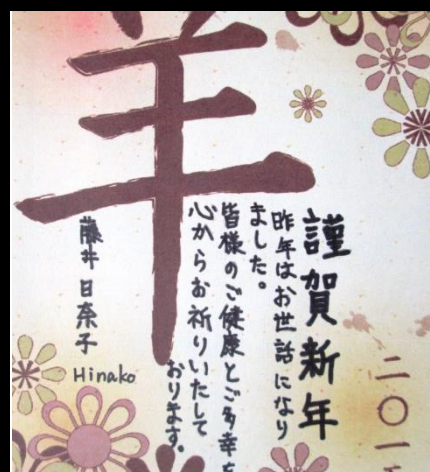 羊
二〇一
謹賀新年
昨年はお世話になり
ました。
皆様のご健康とご多幸を
心からお祈りいたして
おります。
藤井日奈子
Hinako